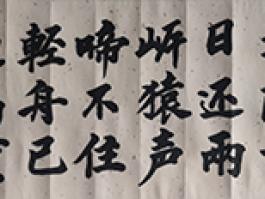 日还兩
岸猿声
啼不住
輕舟已